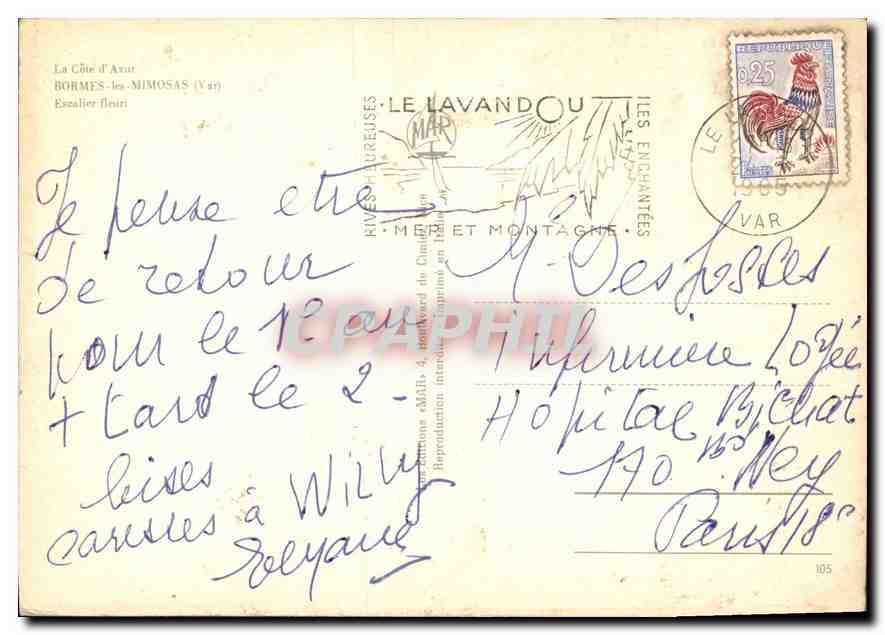 La Côte d'Azur
BORMES-les-MIMOSAS (Var)
Escalier fleuri
RIVES HEUREUSES
· LE LAVANDOU
MAR
ILES ENCHANTÉES
· MER ET MONTAGNE ·
REPUBLIQUE FRANÇAISE
0,25
LE
1965
VAR
Je pense etre
de retour
pour le 1er au
+ tard le 2 -
bises
caresses à Willy
Les Editions «MAR» 4, boulevard de Cimiez Nice
Reproduction interdite Imprimé en Italie
CPAPHIL
Infirmière Logée
Hôpital Bichat
170 Bd Ney
Paris 18e
105